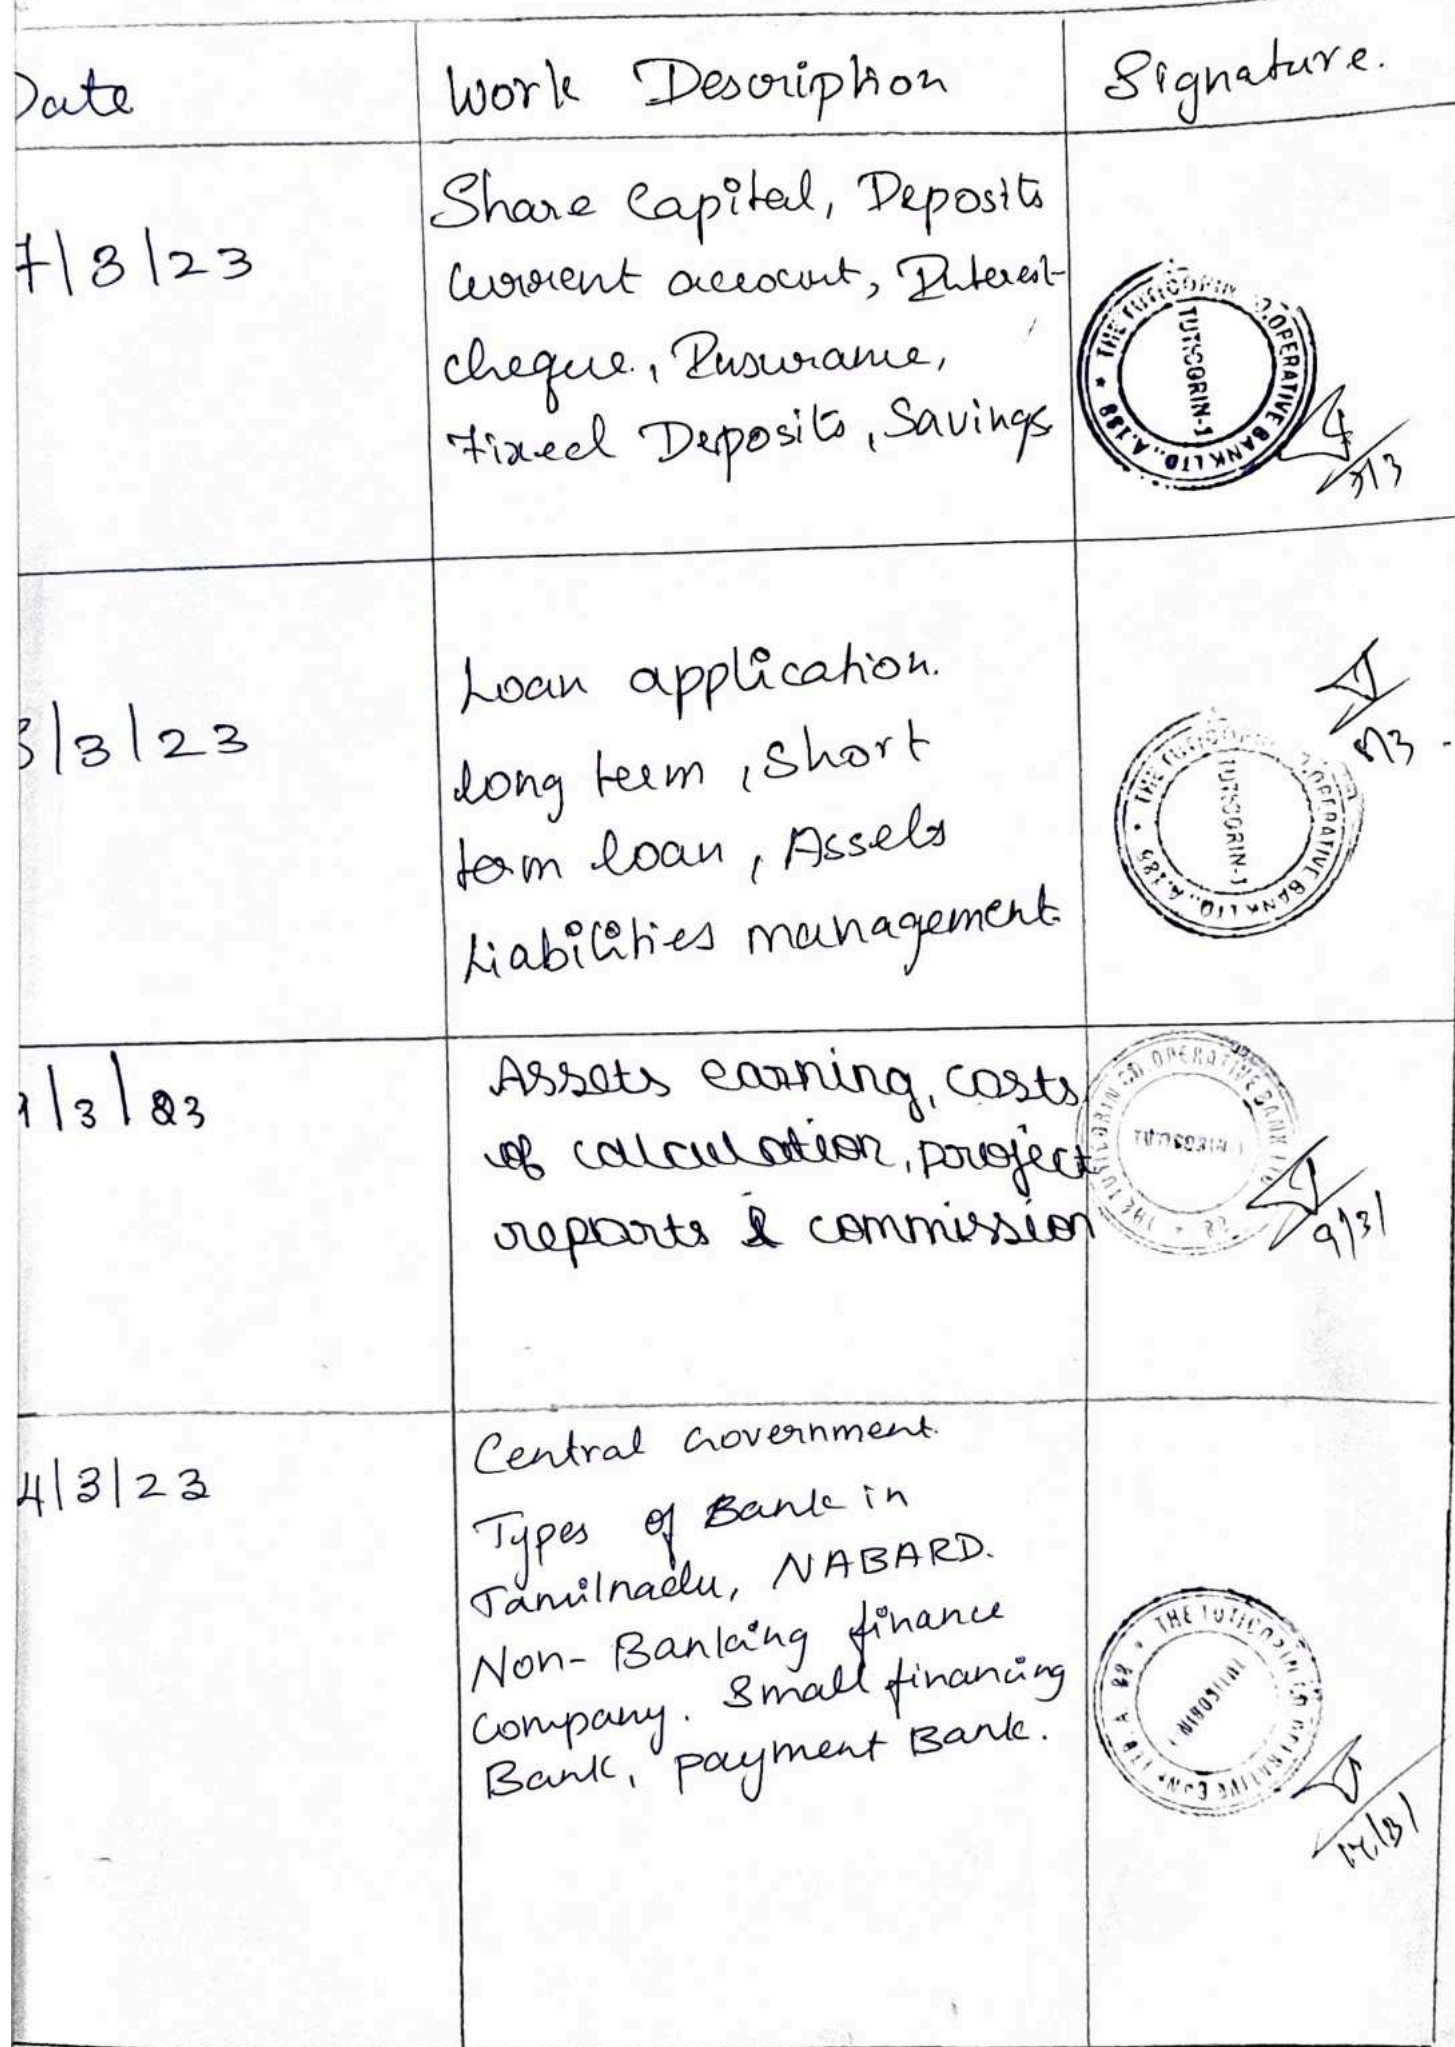 Date Work Description Signature.
7/3/23
Share Capital, Deposits
Current account, Interest
cheque, Insurance,
Fixed Deposits, Savings
THE TUTICORIN CO.OPERATIVE BANK LTD., A.188
TUTICORIN-1
7/3
8/3/23
Loan application.
long term, Short
term loan, Assets
Liabilities management
THE TUTICORIN CO.OPERATIVE BANK LTD., A.188
TUTICORIN-1
8/3
9/3/23
Assets earning, costs
of calculation, project
reports & commission
THE TUTICORIN CO OPERATIVE BANK LTD
TUTICORIN
9/3/
4/3/23
Central Government
Types of Bank in
Tamilnadu, NABARD.
Non-Banking finance
company. Small financing
Bank, payment Bank.
THE TUTICORIN CO OPERATIVE BANK LTD A
TUTICORIN
14/3/